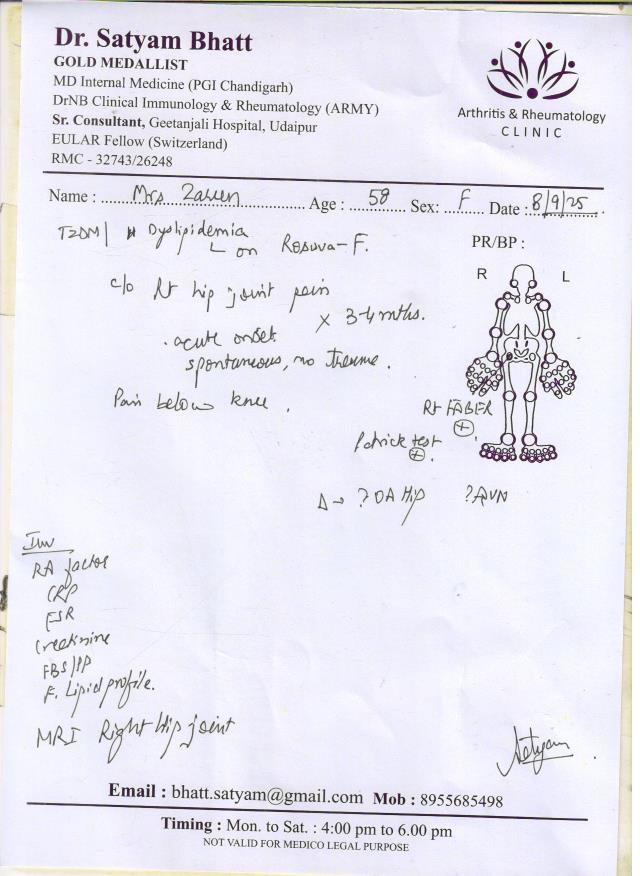 Dr. Satyam Bhatt
GOLD MEDALLIST
MD Internal Medicine (PGI Chandigarh)
DrNB Clinical Immunology & Rheumatology (ARMY)
Sr. Consultant, Geetanjali Hospital, Udaipur
EULAR Fellow (Switzerland)
RMC - 32743/26248
Arthritis & Rheumatology
CLINIC
Name : Mrs Zareen Age : 58 Sex: F Date : 8/9/25
T2DM | Dyslipidemia
on Rosuva-F.
PR/BP :
R L
c/o Rt hip joint pain
x 3-4 mths.
. acute onset
spontaneous, no
Pain below knee .
Rt FABER
+
Patrick test
+
Δ → ? OA Hip ? AVN
Inv
RA factor
CRP
ESR
Creatinine
FBS/PP
F. Lipid profile.
MRI Right Hip joint
Satyam
Email : bhatt.satyam@gmail.com Mob : 8955685498
Timing : Mon. to Sat. : 4:00 pm to 6.00 pm
NOT VALID FOR MEDICO LEGAL PURPOSE